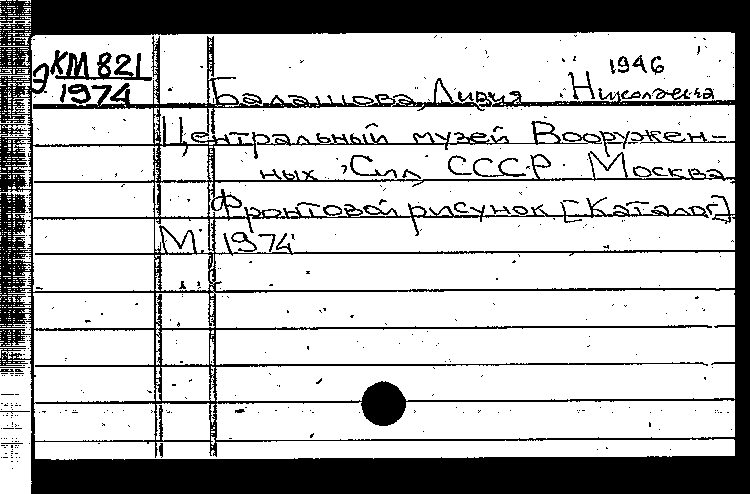 Э КМ 821
1974
1946
Балашова, Лидия Николаевна
Центральный музей Вооружен-
ных Сил СССР. Москва
Фронтовой рисунок [Каталог]
М. 1974
...